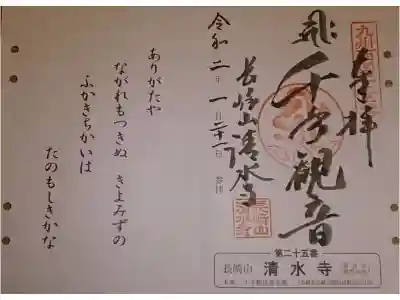 奉拝
千手観音
長崎山清水寺
令和二年一月二十一日 参拝
ありがたや
ながれもつきぬ きよみずの
ふかきちかいは
たのもしきかな
第二十五番
長崎山 清水寺